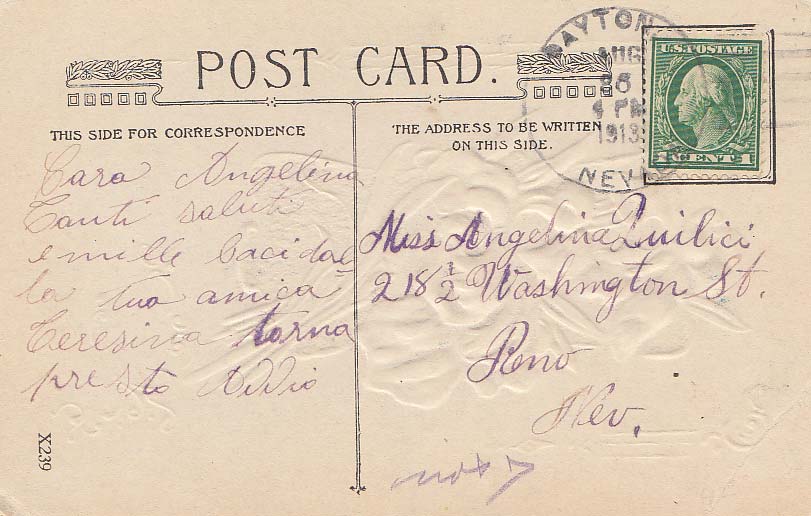 POST CARD.
THIS SIDE FOR CORRESPONDENCE
THE ADDRESS TO BE WRITTEN
ON THIS SIDE.
DAYTON
AUG
26
4 PM
1913
NEV
U.S. POSTAGE
1 CENT 1
Cara Angelina
Tanti saluti
e mille baci dal
la tua amica
Teresina torna
presto Addio
Miss Angelina Quilici
218 1/2 Washington St.
Reno
Nev.
X239